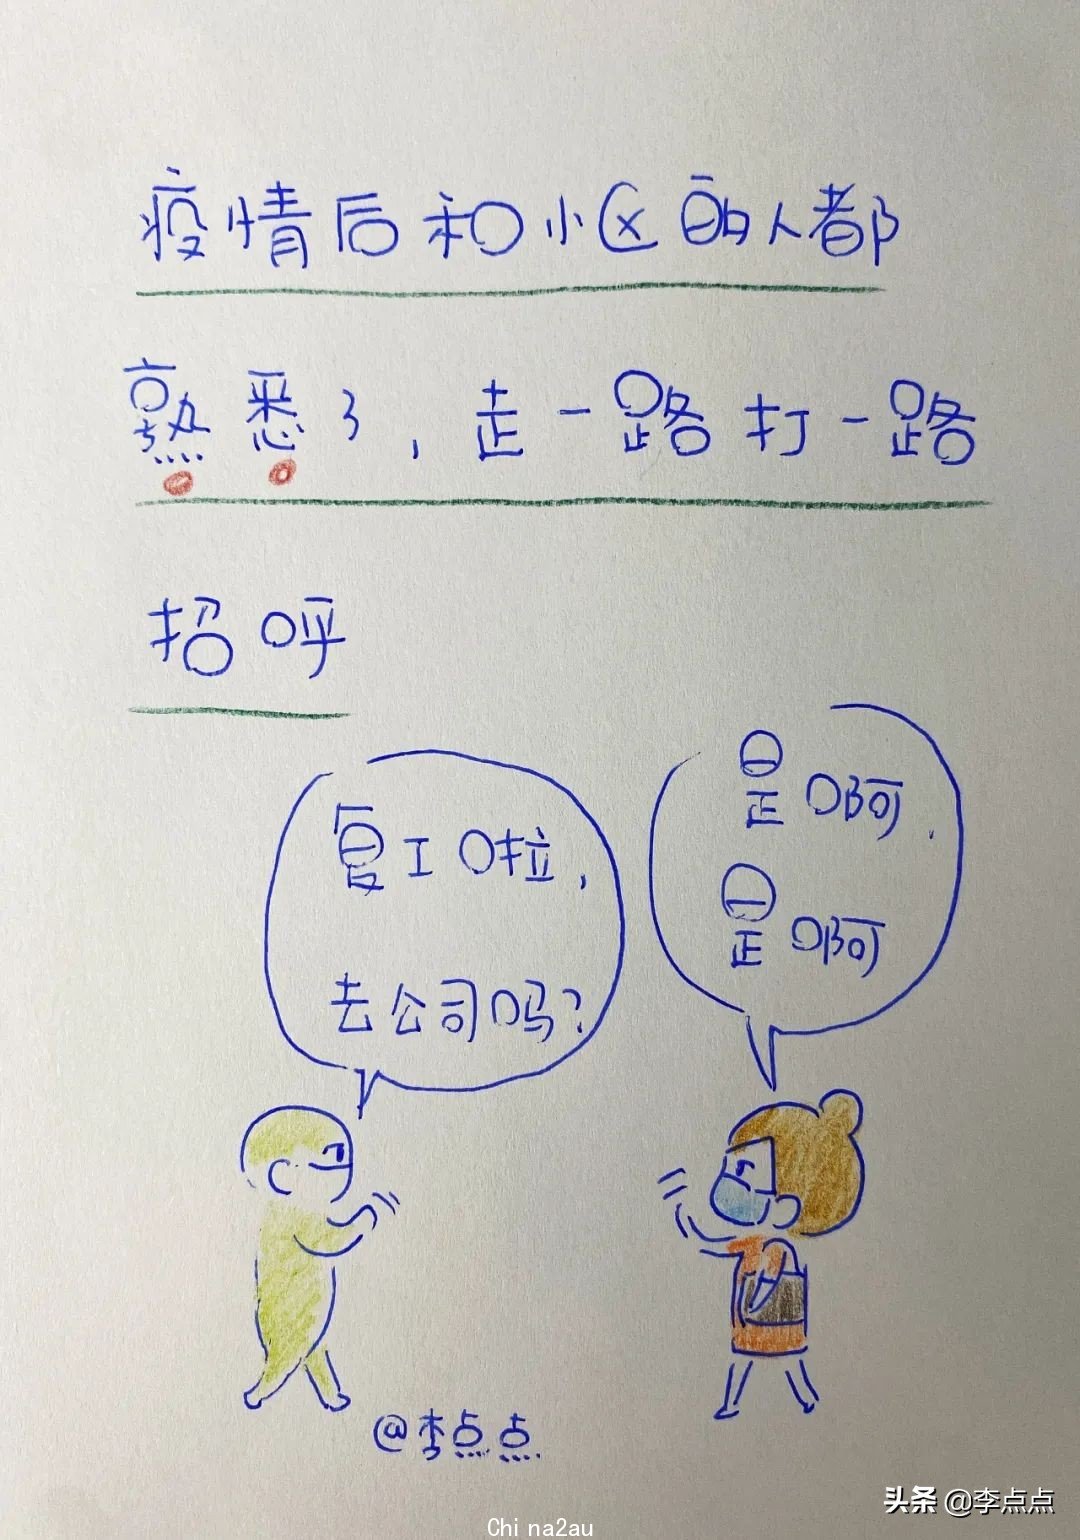 疫情后和小区的人都
熟悉了,走一路打一路
招呼
复工啦,
去公司吗?
是啊,
是啊
@李点点
头条 @李点点
Chi na2au